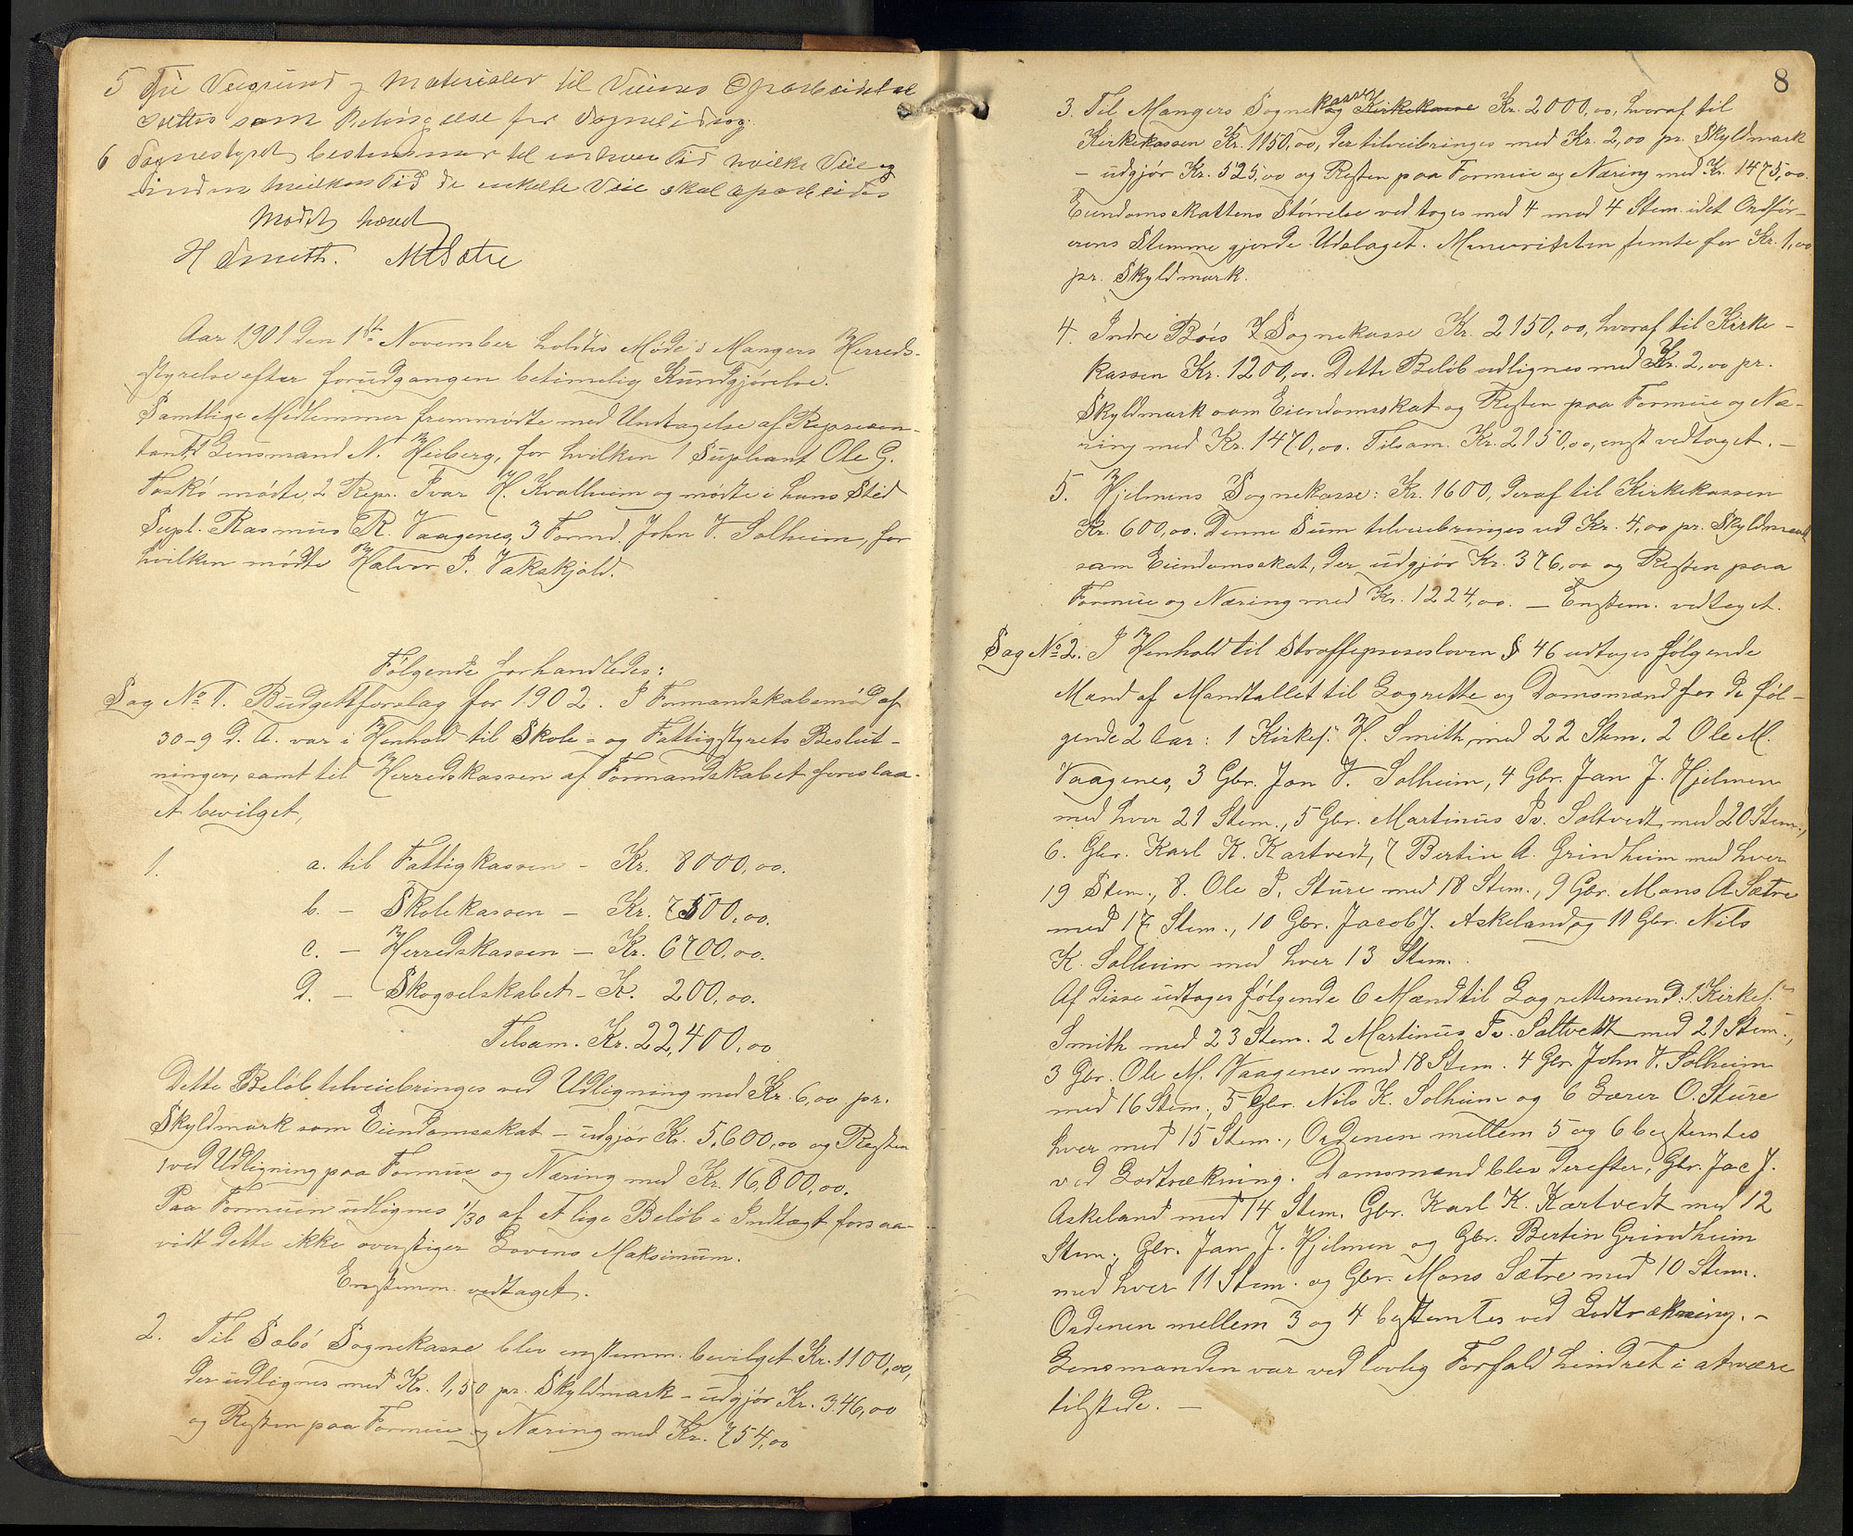 5 Fri Veigrund og Materialer til Veienes Oparbeidelse
settes som Betingelse for Sogneidrag.
6 Sognestyret bestemmer til enhver Tid hvilke Veie og
inden hvilken Tid de enkelte Veie skal oparbeides
Mødet hævet
H Smith. M Sætre
Aar 1901 den 1ste November holdtes Møde i Mangers Herreds-
styrelse efter forudgangen betimelig Kundgjørelse.
Samtlige Medlemmer fremmødte med Undtagelse af Represen-
tant Lensmand N. Heiberg, for hvilken 1 Supleant Ole G.
Toskø mødte, 2 Repr. Ivar H. Kvalheim og mødte i hans Sted
Supl. Rasmus R. Vaagenes, 3 Formd. John V. Solheim, for
hvilken mødte Halvor J. Vakskjold.
Følgende forhandledes:
Sag No 1. Budgetforslag for 1902. I Formandskabsmød af
30-9 d. A. var i Henhold til Skole- og Fattigstyrets Beslut-
ninger, samt til Herredskassen af Formandskabet foreslaa-
et bevilget,
1. a. til Fattigkassen - Kr. 8000,00.
b. - Skolekassen - Kr. 7500,00.
c. - Herredskassen - Kr. 6700,00.
d. - Skogselskabet - K. 200,00.
Tilsam. Kr. 22,400,00
Dette Beløb tilveiebringes ved Udligning med Kr. 6,00 pr.
Skyldmark som Eiendomsskat - udgjør Kr. 5,600,00 og Resten
ved Udligning paa Formue og Næring med Kr. 16,800,00.
Paa Formuen udlignes 1/30 af et lige Beløb i Indtægt forsaa-
vidt dette ikke overstiger Lovens Maksimum.
Enstemm. vedtaget.
2. Til Sæbø Sognekasse blev enstemm. bevilget Kr. 1100,00,
der udlignes med Kr. 1,50 pr. Skyldmark - udgjør Kr. 346,00
og Resten paa Formue og Næring med Kr. 754,00
8
3. Til Mangers Sognekasse og Kirkekasse Kr. 2000,00, hvoraf til
Kirkekassen Kr. 1150,00, der tilveibringes med Kr. 2,00 pr. Skyldmark
- udgjør Kr. 525,00 og Resten paa Formue og Næring med Kr. 1475,00.
Eiendomsskattens Størrelse vedtoges med 4 mod 4 Stem. idet Ordfør-
erens Stemme gjorde Udslaget. Minoriteten stemte for Kr. 1,00
pr. Skyldmark.
4. Indre Bøes Sognekasse Kr. 2150,00, hvoraf til Kirke-
kassen Kr. 1200,00. Dette Beløb udlignes med Kr. 2,00 pr.
Skyldmark som Eiendomsskat og Resten paa Formue og Næ-
ring med Kr. 1470,00. Tilsam. Kr. 2150,00, enst vedtaget. -
5. Hjelmens Sognekasse: Kr. 1600, deraf til Kirkekassen
Kr. 600,00. Denne Sum tilveiebringes ved Kr. 4,00 pr. Skyldmark
som Eiendomsskat, der udgjør Kr. 376,00 og Resten paa
Formue og Næring med Kr. 1224,00. - Enstem. vedtaget.
Sag No 2. I Henhold til Straffeprosesloven § 46 udtoges følgende
Mænd af Mandtallet til Lagrette og Domsmænd for de føl-
gende 2 Aar: 1 Kirkes. H. Smith med 22 Stem. 2 Ole M.
Vaagenes, 3 Gbr. Jon V. Solheim, 4 Gbr. Jan J. Hjelmen
med hver 21 Stem., 5 Gbr. Martinus Saltvedt med 20 Stem.,
6. Gbr. Karl K. Kartvedt, 7 Bertin A. Grindheim med hver
19 Stem., 8. Ole P. Sture med 18 Stem., 9 Gbr. Mons A Sætre
med 17 Stem., 10 Gbr. Jacob J. Askeland og 11 Gbr. Nils
K. Solheim med hver 13 Stem.
Af disse udtoges følgende 6 Mænd til Lagrettemend: 1. Kirkes.
Smith med 23 Stem. 2 Martinus Saltvedt med 21 Stem.,
3 Gbr. Ole M. Vaagenes med 18 Stem. 4 Gbr John V. Solheim
med 16 Stem., 5 Gbr. Nils K. Solheim og 6 Lærer O. Sture
hver med 15 Stem., Ordenen mellem 5 og 6 bestemtes
ved Lodtrækning. Domsmænd blev derefter, Gbr. Jac J.
Askeland med 14 Stem. Gbr. Karl K. Kartvedt med 12
Stem., Gbr. Jan J. Hjelmen og Gbr. Bertin Grindheim
med hver 11 Stem. og Gbr. Mons Sætre med 10 Stem.
Ordenen mellem 3 og 4 bestemtes ved Lodtrækning. -
Lensmanden var ved lovlig Forfald hindret i at være
tilstede. -